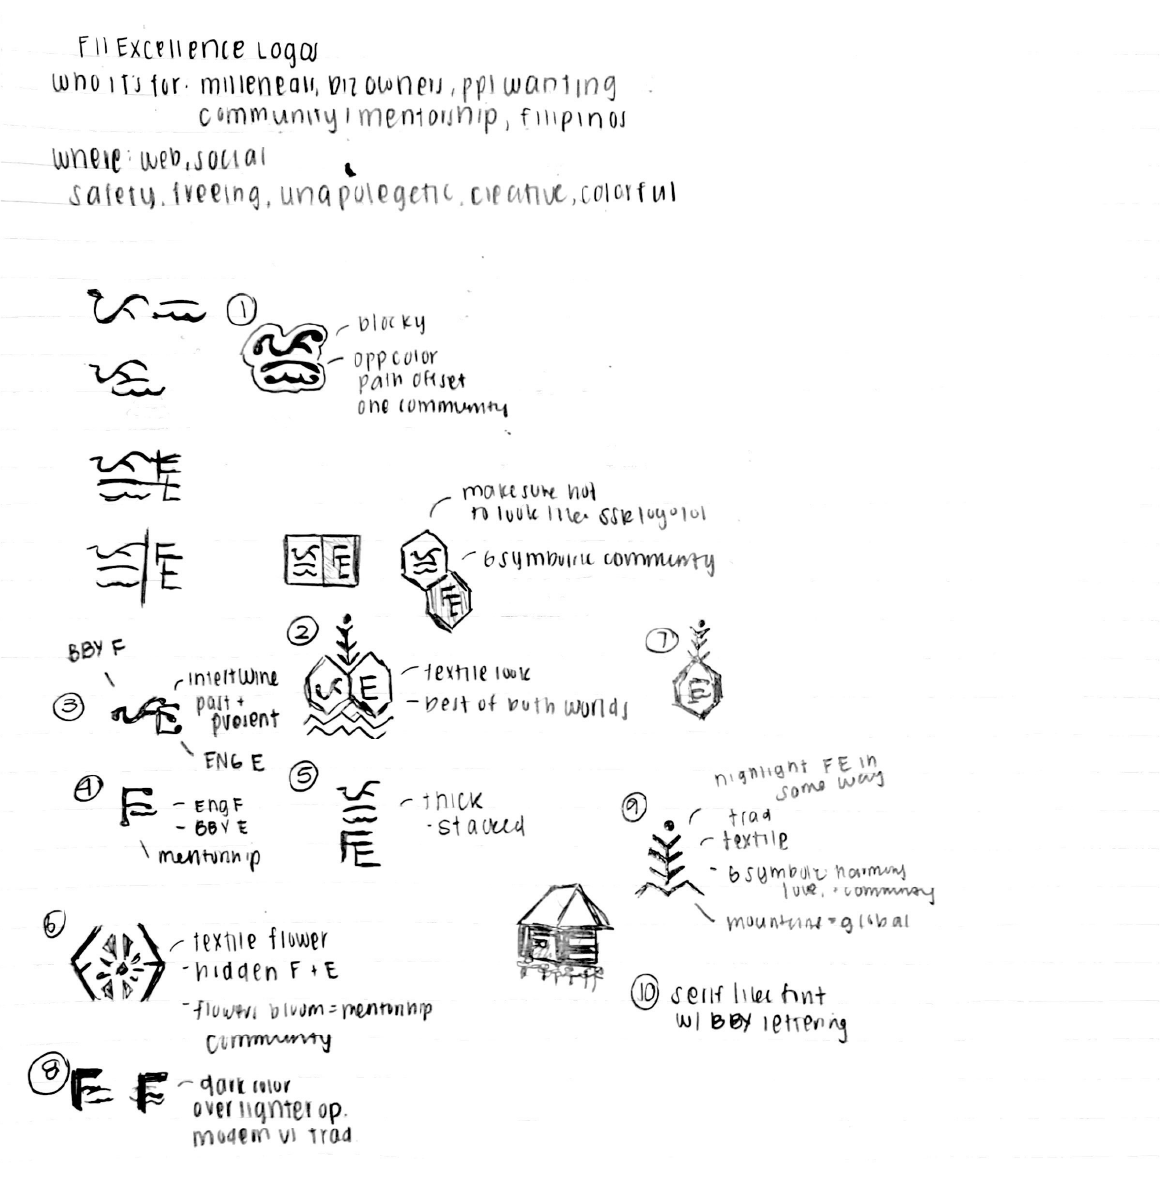 Fil Excellence Logos
who it's for: milleneals, biz owners, ppl wanting
community/mentorship, filipinos
where: web, social
safety, freeing, unapolegetic, creative, colorful
1
blocky
opp color
path offset
one community
make sure not
to look like SSR logo lol
6 symbolic community
F
E
F
E
E
F
E
BBY F
3
intertwine
past +
present
ENG E
2
E
textile look
best of both worlds
7
E
4
- Eng F
- BBY E
mentorship
5
FE
thick
- stacked
highlight FE in
some way
9
trad
textile
- 6 symbolic harmony
love, + community
mountains = global
6
textile flower
- hidden F + E
- flowers bloom = mentorship
community
10 serif like font
w/ BBY lettering
8
dark color
over lighter op.
modern v/ trad